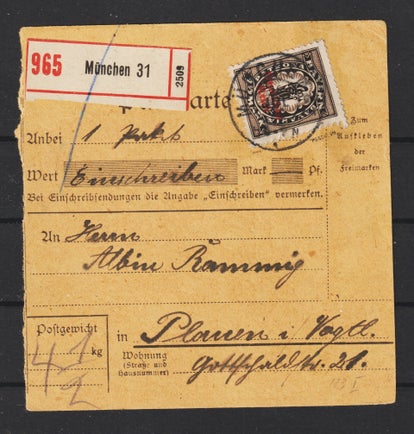 965 München 31 2509
karte
Anbei 1 Paket
Zum
Aufkleben
der
Freimarken
Wert Einschreiben Mark Pf.
Bei Einschreibsendungen die Angabe „Einschreiben" vermerken.
An Herrn
Albin Rammig
Postgewicht
kg
in Plauen i/ Vogtl.
Wohnung
(Straße und
Hausnummer)
Gottschaldstr. 21.